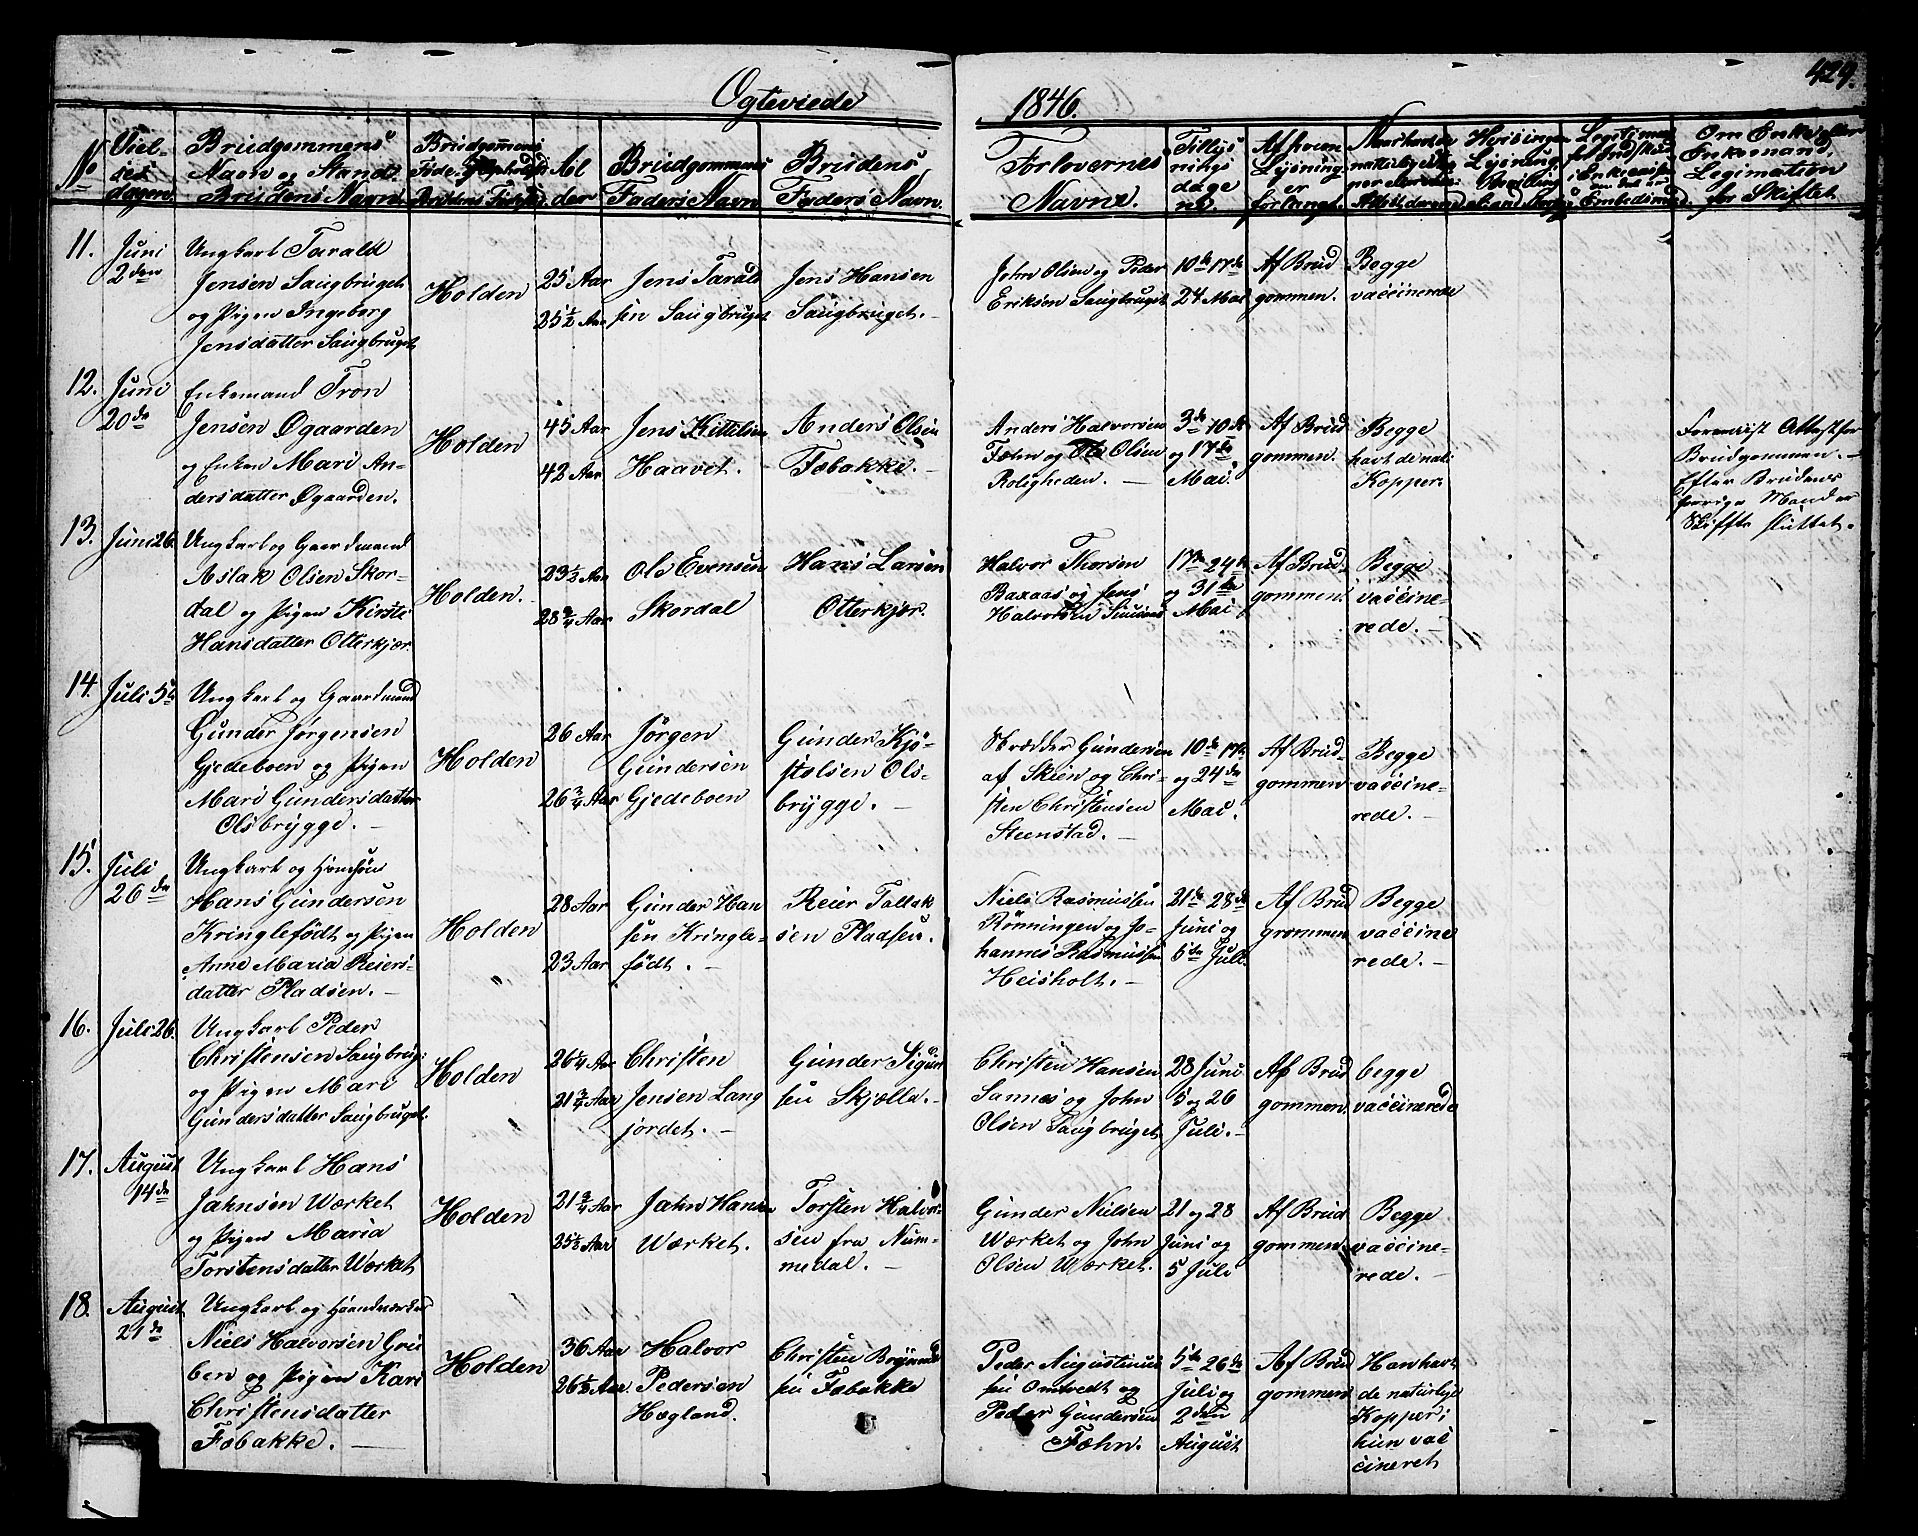 429.
Ogteviede 1846.
No
Viel-
ses
dagen.
Brudgommens
Navn og Stand.
Brudens Navn.
Brudgommens
Føde
Brudens
Al
der
Brudgommens
Faders Navn
Brudens
Faders Navn.
Forlovernes
Navne.
Tillys
nings
dage
ne.
Af hvem
Lysning
er
forlangt.
Lysning
Om Enke eller
Enkemand,
Legimation
for Skiftet.
11.
Juni
2den
Ungkarl Tarald
Jensen Saugbruget
og Pigen Ingeborg
Jensdatter Saugbruget
Holden
25 Aar
25½ Aar
Jens Tarald
sen Saugbruget
Jens Hansen
Saugbruget.
John Olsen og Peder
Eriksen Saugbruget
10de 17de
24 Mai
Af Brud
gommen.
Begge
vaccinerede
12.
Juni
20de
Enkemand Tron
Jensen Øgaarden
og Enken Mari An-
dersdatter Øgaarden.
Holden
45 Aar
42 Aar
Jens Kittelsen
Haavet.
Anders Olsen
Fæbakke.
Anders Halvorsen
Fæhn og Ole Olsen
Roligheden.
3de 10de
og 17de
Mai.
Af Brud
gommen.
Begge
havt de nat:
Kopper.
Foreviist Attest for
Brudgommen.
Efter Brudens
forrige Mand er
Skifte sluttet.
13.
Juni 26.
Ungkarl og Gaardmand
Aslak Olsen Skor-
dal og Pigen Kirsti
Hansdatter Otterkjær
Holden.
23½ Aar
28¾ Aar
Ole Evensen
Skordal
Hans Larsen
Otterkjær.
Halvor Thorsen
Baxaas og Jens
Halvorsen
17de 24de
og 31te
Mai
Af Brud
gommen.
Begge
vaccine-
rede.
14.
Juli 5te
Ungkarl og Gaardmand
Gunder Jørgensen
Gjedeboen og Pigen
Mari Gundersdatter
Olsbrygge.
Holden
26 Aar
26¾ Aar
Jørgen
Gundersen
Gjedeboen
Gunder Kjø-
stolsen Ols-
brygge.
Skrædder Gundersen
af Skien og Chri-
sten Christensen
Steenstad.
10de 17de
og 24de
Mai.
Af Brud-
gommen
Begge
vaccine-
rede.
15.
Juli
26de
Ungkarl og
Hans Gundersen
Kringlefødt og Pigen
Anne Maria Reiers-
datter Pladsen.
Holden
28 Aar
23 Aar
Gunder Han
sen Kringle-
født.
Reier Tallak
sen Pladsen.
Niels Rasmussen
Rønningen og Jo-
hannes Rasmussen
Heisholt.
21de 28de
Juni og
5te Juli.
Af Brud
grommen
Begge
vaccine
rede.
16.
Juli 26.
Ungkarl Peder
Christensen Saugbrug:
og Pigen Mari
Gundersdatter Saugbruget.
Holden
26¼ Aar
21¾ Aar
Christen
Jensen Lang
jordet.
Gunder Sigur
sen Skjælle.
Christen Hansen
Sannes og John
Olsen Saugbruget
28 Juni
5 og 26
Juli.
Af Brud
gommen
begge
vaccinærede
17.
August
14de
Ungkarl Hans
Jahnsen Wærket
og Pigen Maria
Torstensdatter Wærket
Holden
21¾ Aar
25½ Aar
Jahn Hansen
Wærket.
Torsten Halvor
sen fra Num-
medal.
Gunder Nielsen
Wærket og John
Olsen Wærket.
21 og 28
Juni og
5 Juli
Af Brud
gommen
Begge
vaccine-
rede.
18.
August
21de
Ungkarl og Haandværker
Niels Halvorsen Gru
ben og Pigen Kari
Christensdatter
Fæbakke.
Holden
36 Aar
26½ Aar.
Halvor
Pedersen
Hægland.
Christen Brynild
sen Fæbakke
Peder Augustinus
sen Omtvedt og
Peder Gundersen
Fæhn.
5te 26de
Juli og
2den
August
Af Brud
gommen
Han havt
de naturlige
Kopper;
hun vac
cineret